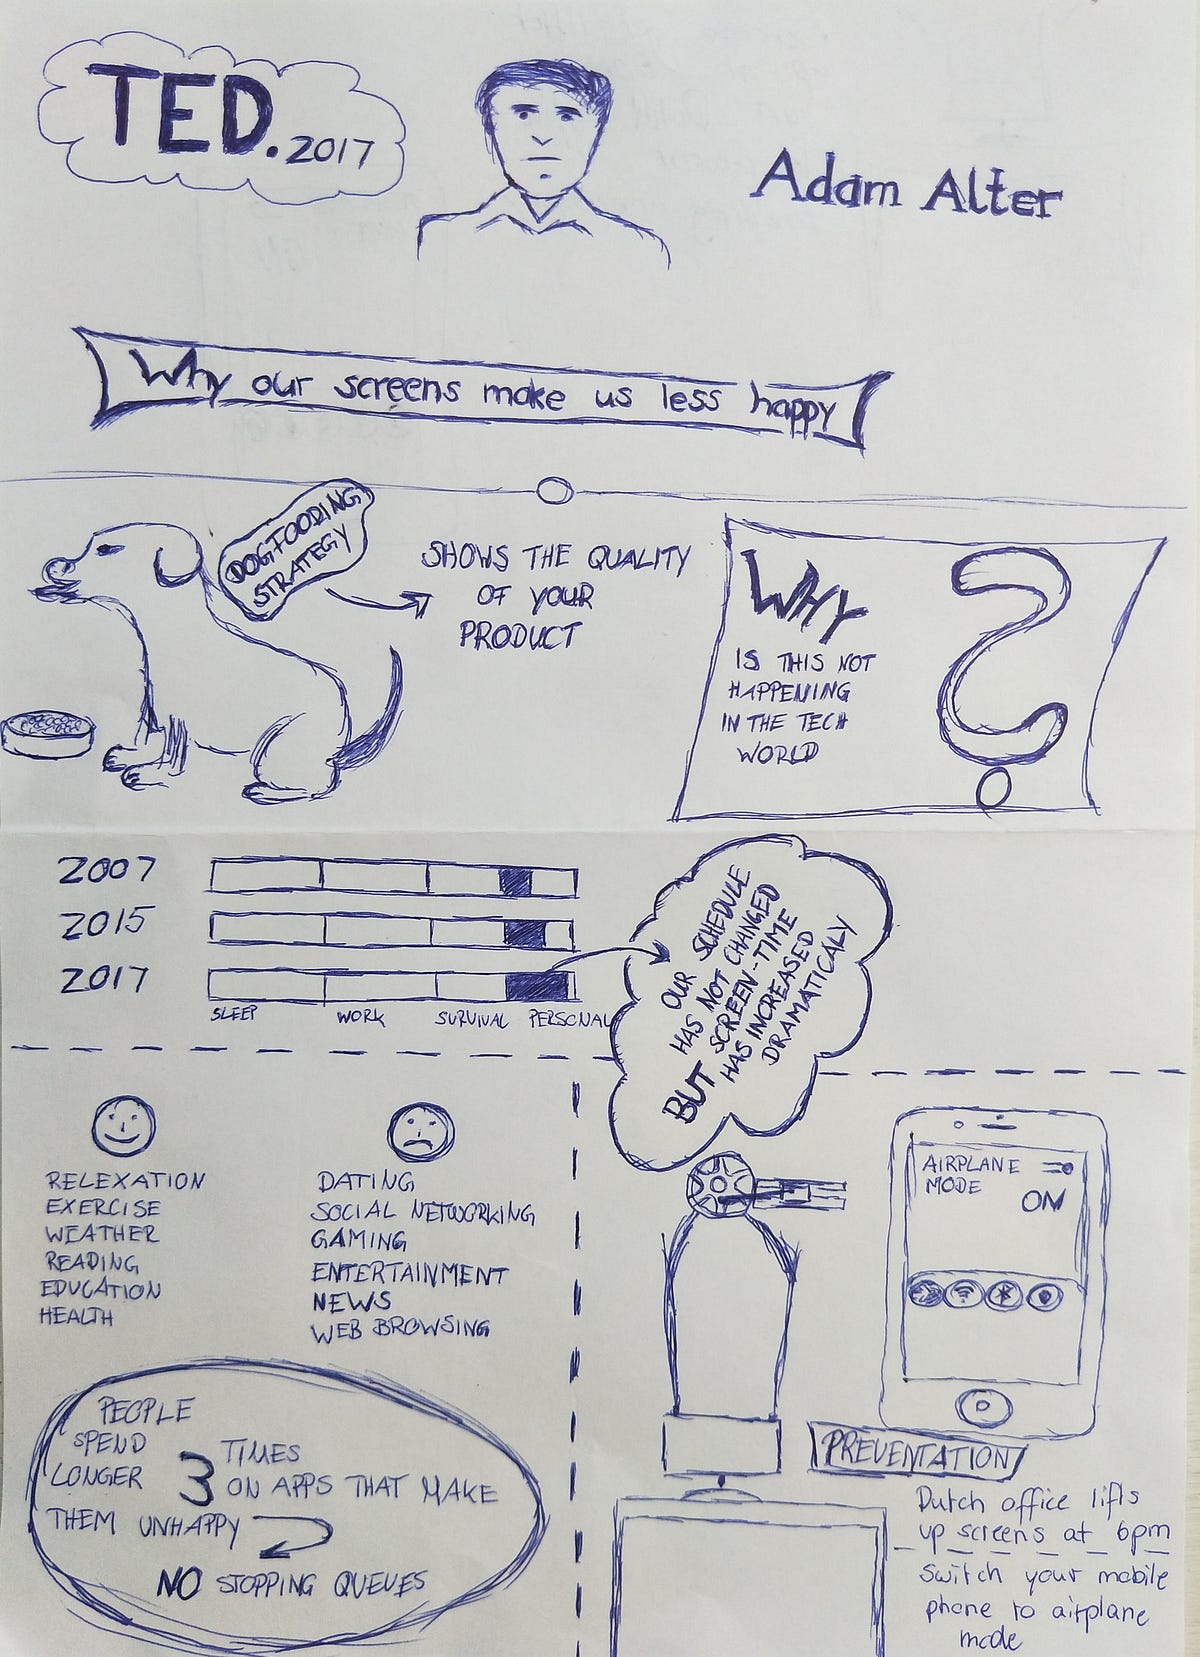 TED.2017
Adam Alter
Why our screens make us less happy
DOGFOODING
STRATEGY
SHOWS THE QUALITY
OF YOUR
PRODUCT
WHY
IS THIS NOT
HAPPENING
IN THE TECH
WORLD
?
2007
2015
2017
SLEEP WORK SURVIVAL PERSONAL
OUR SCHEDULE
HAS NOT CHANGED
BUT SCREEN-TIME
HAS INCREASED
DRAMATICALY
RELEXATION
EXERCISE
WEATHER
READING
EDUCATION
HEALTH
DATING
SOCIAL NETWORKING
GAMING
ENTERTAINMENT
NEWS
WEB BROWSING
AIRPLANE
MODE
ON
PEOPLE
SPEND
LONGER 3 TIMES
ON APPS THAT MAKE
THEM UNHAPPY
NO STOPPING QUEUES
PREVENTATION
Dutch office lifts
up screens at 6pm
Switch your mobile
phone to airplane
mode